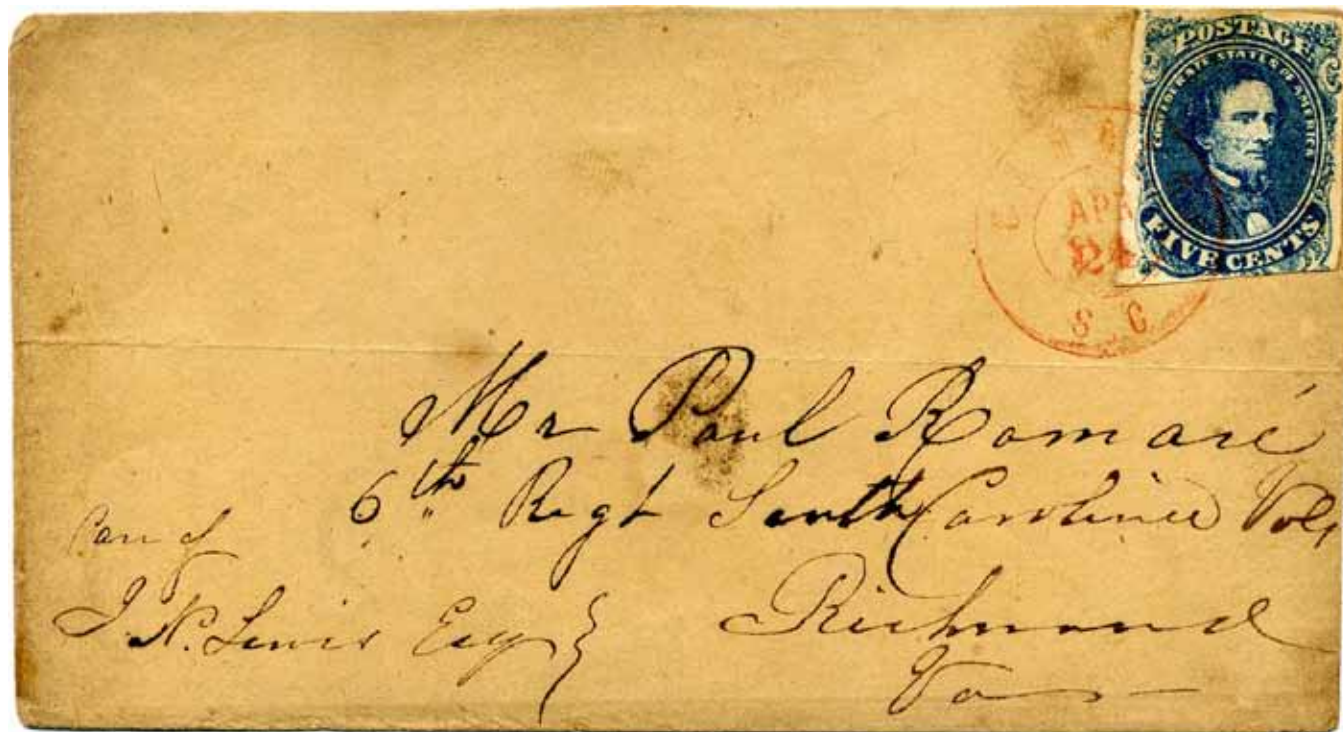 POSTAGE
CONFEDERATE STATES OF AMERICA
FIVE CENTS
APR
24
S C
Mr Paul Romaré
6th Regt South Carolina Vols
Care of
J. N. Lewis Esq
Richmond
Va